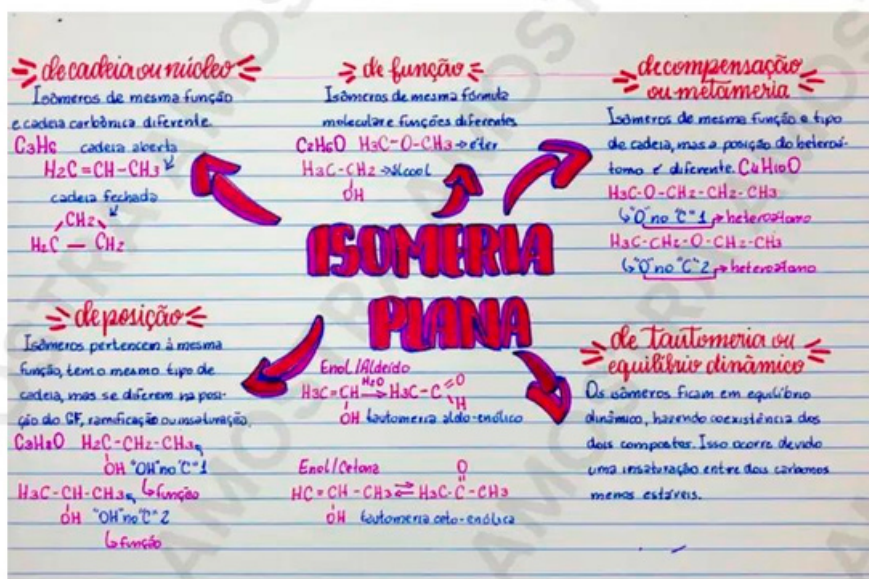 de cadeia ou núcleo
Isômeros de mesma função
e cadeia carbônica diferente.
C3H6 cadeia aberta
H2C=CH-CH3
cadeia fechada
CH2
H2C — CH2
de função
Isômeros de mesma fórmula
molecular e funções diferentes
C2H6O H3C-O-CH3→éter
H3C-CH2→álcool
OH
de compensação
ou metameria
Isômeros de mesma função e tipo
de cadeia, mas a posição do heteroá-
tomo é diferente. C4H10O
H3C-O-CH2-CH2-CH3
"O" no "C" 1 heteroátomo
H3C-CH2-O-CH2-CH3
"O" no "C" 2 heteroátomo
ISOMERIA
PLANA
de posição
Isômeros pertencem à mesma
função, tem o mesmo tipo de
cadeia, mas se diferem na posi-
ção do GF, ramificação ou insaturação.
C3H8O H2C-CH2-CH3
OH "OH" no "C" 1
função
H3C-CH-CH3
OH "OH" no "C" 2
função
Enol/Aldeído
H3C=CH H2O H3C-C O
H
OH tautomeria aldo-enólico
Enol/Cetona
O
HC=CH-CH3 ⇌ H3C-C-CH3
OH tautomeria ceto-enólica
de tautomeria ou
equilíbrio dinâmico
Os isômeros ficam em equilíbrio
dinâmico, havendo coexistência dos
dois compostos. Isso ocorre devido
uma insaturação entre dois carbonos
menos estáveis.
AMOSTRA AMOSTRA AMOSTRA